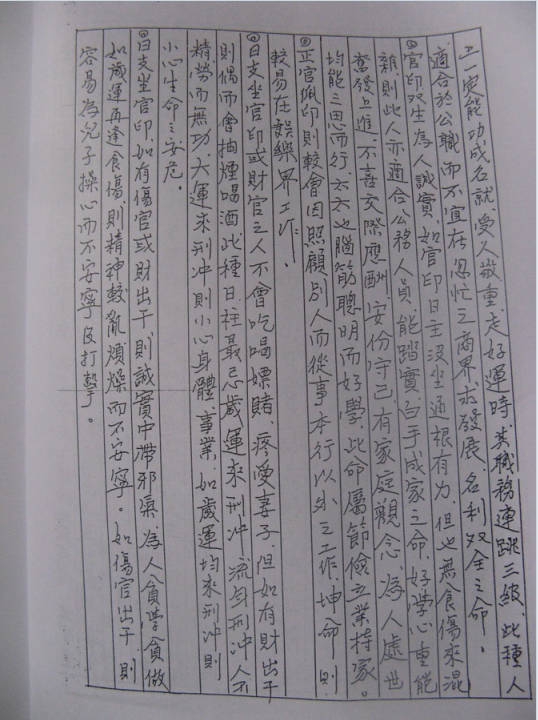 之一定能功成名就,受人敬重,走好運時,其職務連跳三級,此種人
適合於公職而不宜在忽忙之商界求發展,名利双全之命。
官印双生為人誠實,如官印日主沒坐通根有力,但也無食傷來混
雜,則此人亦適合公務人員,能踏實,白手成家之命,好学心重能
奮發上進,不喜交際應酬,安份守己,有家庭觀念,為人處世
均能三思而行,太太也腦筋聰明而好學,此命屬節儉立業持家。
正官佩印則較會因照顧別人而從事本行以外之工作,坤命則
較易在娛樂界工作,
日支坐官印或財官之人不會吃喝嫖賭,疼愛妻子,但如有財出干
則偶而會抽煙喝酒,此種日柱最忌歲運來刑冲,流年刑冲人不
精勞而無功,大運來刑冲則小心身體,事業,如歲運均來刑冲則
小心生命之安危。
日支坐官印,如有傷官或財出干,則誠實中帶邪氣,為人貪學貪做
如歲運再逢食傷,則精神較亂煩燥而不安寧。如傷官出干,則
容易為兒子操心而不安寧及打擊。